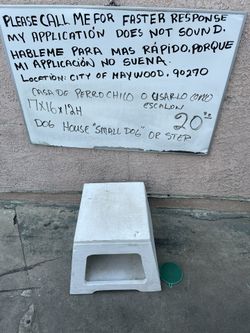 PLEASE CALL ME FOR FASTER RESPONSE
MY APPLICATION DOES NOT SOUND.
HABLEME PARA MAS RÁPIDO, PORQUE
MI APPLICACIÓN NO SUENA.
LOCATION: CITY OF MAYWOOD. 90270
CASA DE PERRO CHICO O USARLO COMO
17X16X12H ESCALON
20.00
DOG HOUSE "SMALL DOG" OR STEP